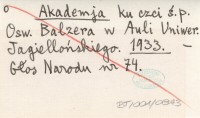 o Akademja ku czci ś.p.
Osw. Balzera w Auli Uniwer.
Jagiellońskiego. 1933. –
Głos Narodu nr 74.